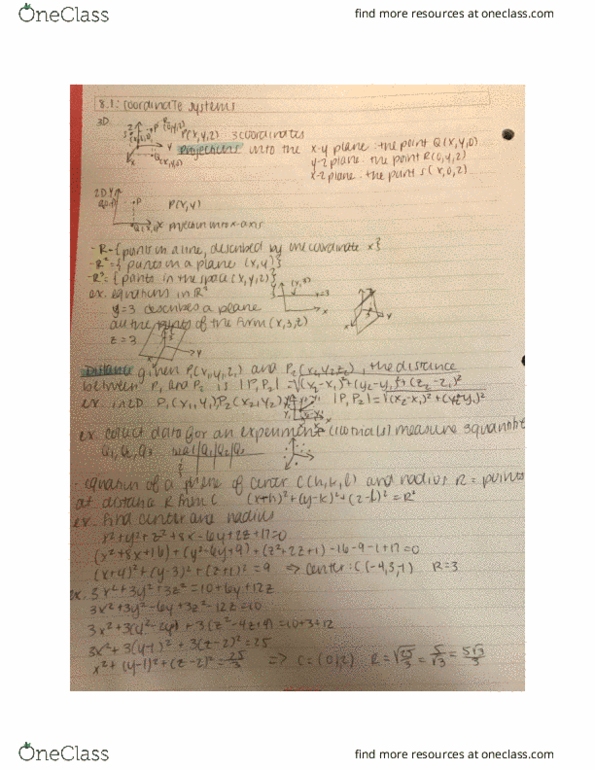 OneClass
find more resources at oneclass.com
8.1: coordinate systems
3D
P(x,y,z) 3 coordinates
Projections into the x-y plane: the point Q(x,y,0)
y-z plane: the point R(0,y,z)
x-z plane: the point S(x,0,z)
2D
P(x,y)
projection into x-axis
-R={points on a line, described by one coordinate x}
-R²={points on a plane (x,y)}
-R³={points in the space (x,y,z)}
ex. equations in R³
y=3 describes a plane
all the points of the form (x,3,z)
z=3
Distance given P₁(x₁,y₁,z₁) and P₂(x₂,y₂,z₂), the distance
between P₁ and P₂ is |P₁P₂|=√(x₂-x₁)²+(y₂-y₁)²+(z₂-z₁)²
ex. in 2D P₁(x₁,y₁) P₂(x₂,y₂) |P₁P₂|=√(x₂-x₁)²+(y₂-y₁)²
ex. collect data for an experiment (10 trials) measure 3 quantities
Q₁, Q₂, Q₃ trial|Q₁|Q₂|Q₃
· equation of a sphere of center C(h,k,l) and radius R = points
at distance R from C (x-h)²+(y-k)²+(z-l)²=R²
ex. find center and radius
x²+y²+z²+8x-6y+2z+17=0
(x²+8x+16)+(y²-6y+9)+(z²+2z+1)-16-9-1+17=0
(x+4)²+(y-3)²+(z+1)²=9 ⇒ center: C(-4,3,-1) R=3
ex. 3x²+3y²+3z²=10+6y+12z
3x²+3y²-6y+3z²-12z=10
3x²+3(y²-2y)+3(z²-4z+4)=10+3+12
3x²+3(y-1)²+3(z-2)²=25
x²+(y-1)²+(z-2)²=25/3 ⇒ C=(0,1,2) R=√25/3=5/√3=5√3/3
OneClass
find more resources at oneclass.com